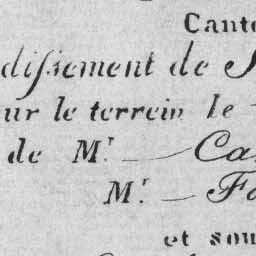 Canto
dissement de S
ur le terrein le
de Mr. — Ca
Mr. — Fa
et sou